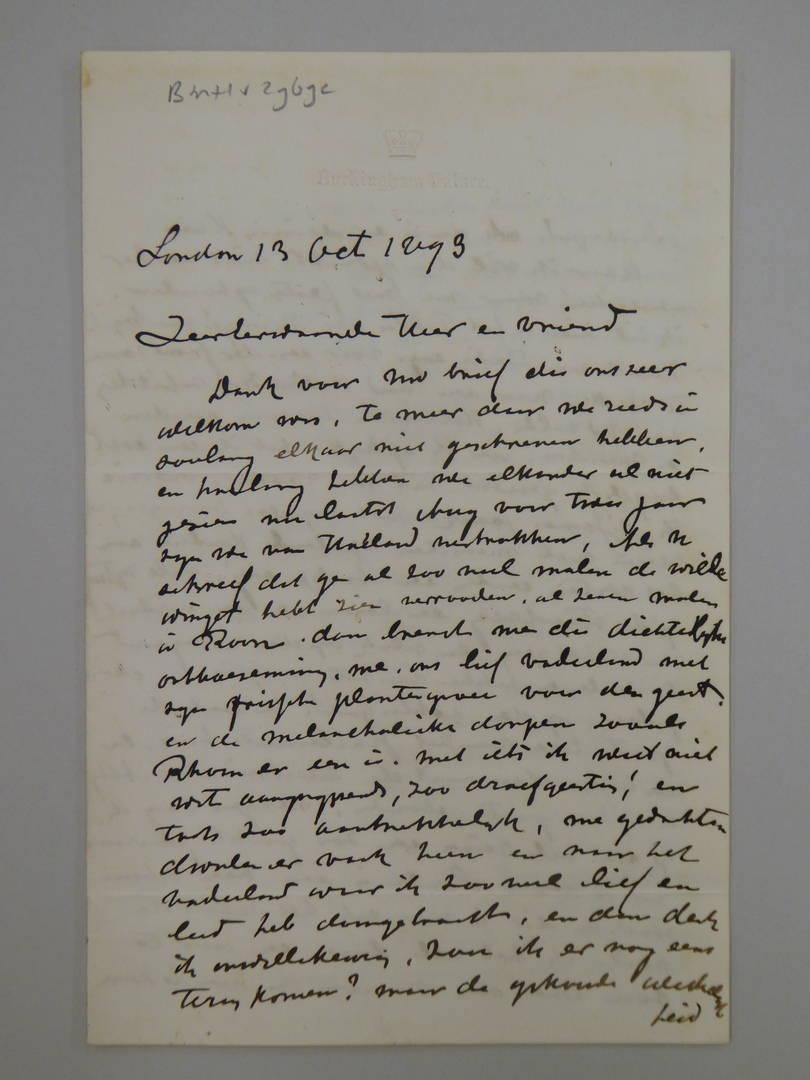 Buckingham Palace.
London 13 Oct 1893
Zeer waarde Heer en vriend
Dank voor uw brief die ons zeer
welkom was, te meer daar we reeds in
zoolang elkaar niet geschreven hebben,
en hoelang hebben we elkander al niet
gezien
zyn we van Holland vertrokken, Als u
schreef dat ge al zoo veel malen de wilde
winget hebt zien verrooden, al zeven malen
in Roon. dan brengt me die dichterlyke
ontboezeming, me, ons lief vaderland met
zyn frissche plantengroei voor den geest,
en de melancholieke dorpen zooals
Rhoon er een is. met iets ik weet niet
wat aangrypends, zoo droefgeestig! en
toch zoo aantrekkelyk, me gedachten
dwalen er vaak heen en naar het
vaderland waar ik zooveel lief en
leed heb doorgebracht, en dan denk
ik onwillekeurig, zou ik er nog eens
terug komen? maar de
heid